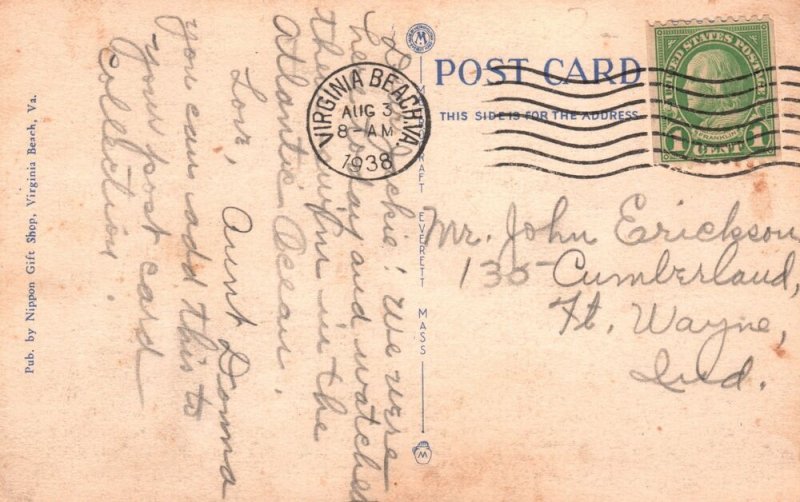 POST CARD
THIS SIDE IS FOR THE ADDRESS
VIRGINIA BEACH, VA.
AUG 3
8-AM
1938
UNITED STATES POSTAGE
FRANKLIN
1 CENT 1
Mr. John Erickson
135 Cumberland,
Ft. Wayne,
Ind.
Jackie! We were
here today and watched
them swim in the
Atlantic Ocean.
Love,
Aunt Donna
you can add this to
your post card
collection.
EVERETT MASS
Pub. by Nippon Gift Shop, Virginia Beach, Va.